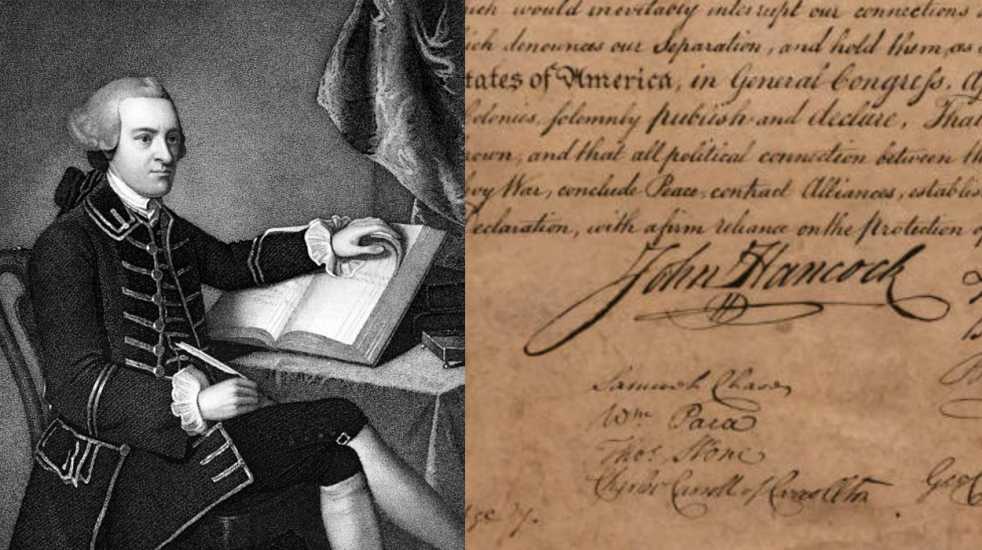 would inevitably interrupt our connections
denounces our Separation, and hold them, as
tates of America, in General Congress,
olonies, solemnly publish and declare, That
and that all political connection between
War, conclude Peace, contract Alliances, establis
eclaration, with a firm reliance on the protection of
John Hancock
Samuel Chase
Wm. Paca
Thos. Stone
Charles Carroll of Carrollton
Geo